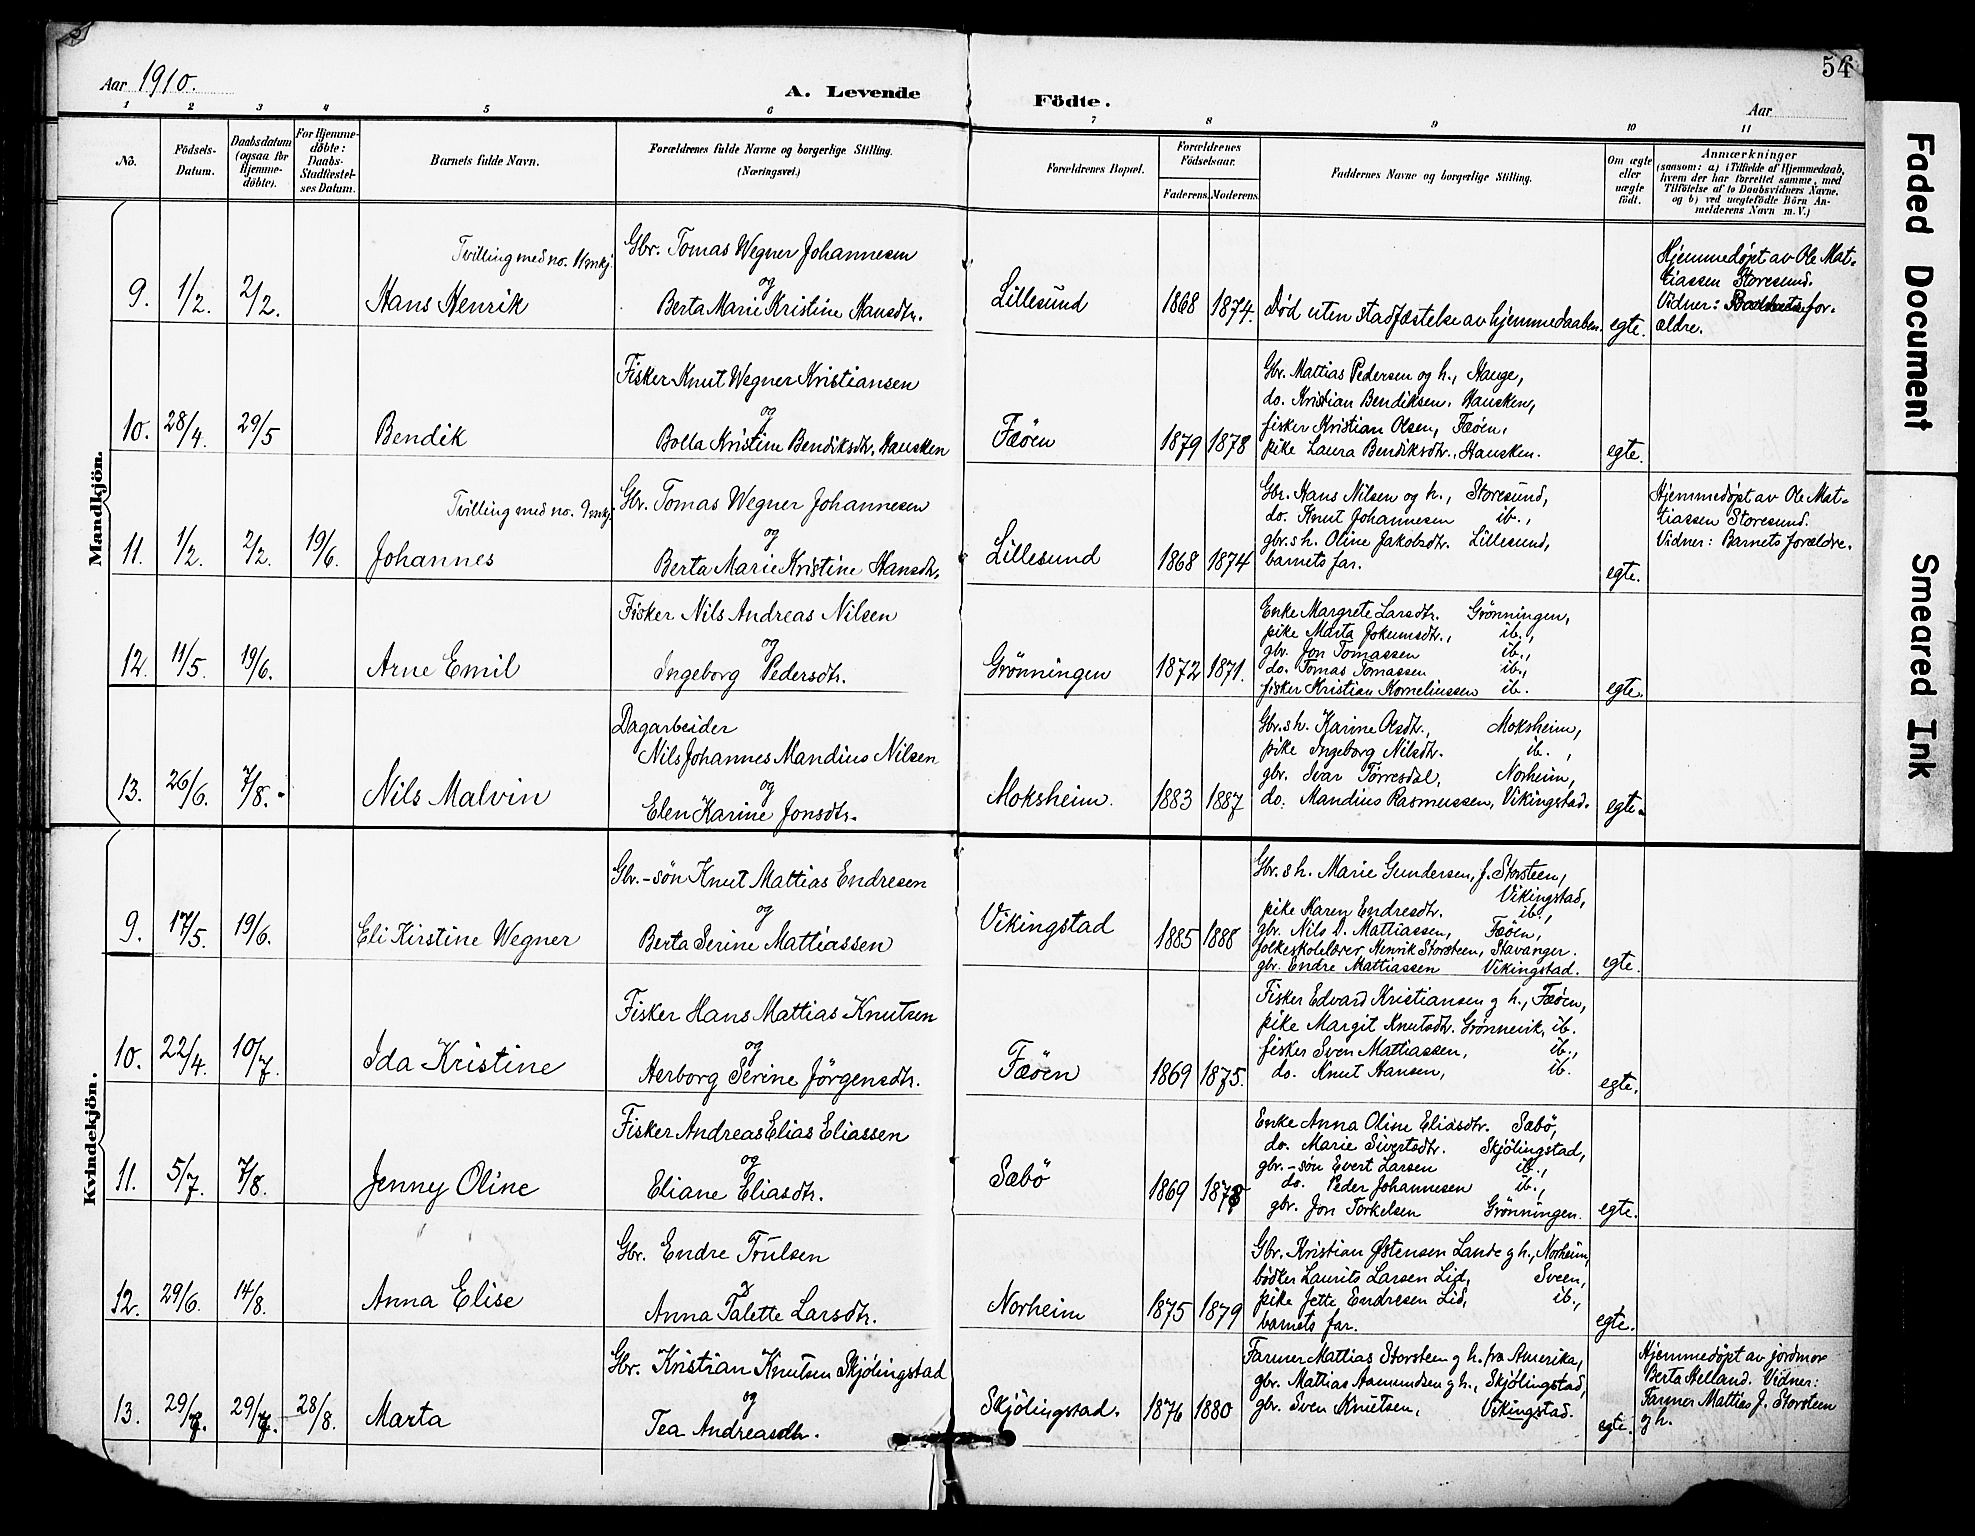 54
Aar 1910.
A. Levende Födte.
Aar
1 2 3 4 5 6 7 8 9 10 11
No.
Födsels-Datum.
Daabsdatum (ogsaa for Hjemmedöbte).
For Hjemmedöbte: Daabs-Stadfæstelses Datum.
Barnets fulde Navn.
Forældrenes fulde Navne og borgerlige Stilling.
(Næringsvei.)
Forældrenes Bopæl.
Forældrenes Födselsaar.
Faderens. Moderens.
Faddernes Navne og borgerlige Stilling.
Om ægte eller uægte födt.
Anmærkninger
(saasom: a) i Tilfælde af Hjemmedaab,
hvem der har forrettet samme, med
Tilföielse af to Daabsvidners Navne,
og b) ved uægtefödte Börn An-
melderens Navn m. V.)
Mandkjön.
9. 1/2. 2/2.
Tvilling med no. 11 mkj.
Hans Henrik
Gbr. Tomas Wegner Johannesen
og
Berta Marie Kristine Hansdtr.
Lillesund
1868 1874.
Död uten stadfæstelse av hjemmedaaben.
egte.
Hjemmedöpt av Ole Mat-
tiassen Storesund.
Vidner: for-
ældre.
10. 28/4. 29/5
Bendik
Fisker Knut Wegner Kristiansen
og
Bolla Kristine Bendiksdtr. Hausken
Fæöen
1879 1878
Gbr. Mattias Pedersen og h., Hauge,
do. Kristian Bendiksen, Hausken,
fisker Kristian Olsen, Fæöen,
pike Laura Bendiksdtr., Hausken.
egte.
11. 1/2. 2/2. 19/6.
Tvilling med no. 9 mkj.
Johannes
Gbr. Tomas Wegner Johannesen
og
Berta Marie Kristine Hansdtr.
Lillesund
1868 1874
Gbr. Hans Nilsen og h., Storesund,
do. Knut Johannesen ib.,
gbr.s h. Oline Jakobsdtr. Lillesund,
barnets far.
egte.
Hjemmedöpt av Ole Mat-
tiassen Storesund.
Vidner: Barnets forældre.
12. 11/5. 19/6.
Arne Emil
Fisker Nils Andreas Nilsen
og
Ingeborg Pedersdtr.
Grönningen
1872 1871.
Enke Margrete Larsdtr. Grönningen,
pike Marta Jokumsdtr., ib.,
gbr. Jon Tomassen ib.,
do. Tomas Tomassen ib.,
fisker Kristian Korneliussen ib.
egte.
13. 26/6. 7/8.
Nils Malvin
Dagarbeider
Nils Johannes Mandius Nilsen
og
Elen Karine Jonsdtr.
Moksheim.
1883 1887
Gbr.s h. Karine Olsdtr., Moksheim,
pike Ingeborg Nilsdtr. ib.,
gbr. Ivar Törresdal, Norheim,
do. Mandius Rasmussen, Vikingstad.
egte.
Kvindekjön.
9. 17/5. 19/6.
Eli Kirstine Wegner
Gbr.-sön Knut Mattias Endresen
og
Berta Serine Mattiassen
Vikingstad
1885 1888
Gbr.s h. Marie Gundersen, f. Storsteen,
Vikingstad,
pike Karen Endresdtr. ib.,
gbr. Nils D. Mattiassen, Fæöen,
folkeskolelærer Henrik Storsteen, Stavanger.
gbr. Endre Mattiassen Vikingstad.
egte.
10. 22/4. 10/7.
Ida Kristine
Fisker Hans Mattias Knutsen
og
Herborg Serine Jörgensdtr.
Fæöen
1869 1875.
Fisker Edvard Kristiansen g h., Fæöen,
pike Margit Knutsdtr. Grönnevik, ib.
fisker Sven Mattiassen, ib.,
do. Knut Hansen, ib.
egte.
11. 5/7. 7/8.
Jenny Oline
Fisker Andreas Elias Eliassen
og
Eliane Eliasdtr.
Sæbö
1869 1878
Enke Anna Oline Eliasdtr. Sæbö,
do. Marie Sivertsdtr. Skjölingstad,
gbr.-sön Evert Larsen ib.,
do. Peder Johannesen ib.,
gbr. Jon Torkelsen Grönningen.
egte.
12. 29/6. 14/8.
Anna Elise
Gbr. Endre Trulsen
Anna Talette Larsdtr.
Norheim
1875 1879
Gbr. Kristian Østensen Lande g h., Norheim,
bödker Laurits Larsen Lid, Sveen,
pike Jette Endresen Lid, ib.,
barnets far.
egte.
13. 29/7. 29/7. 28/8.
Marta
Gbr. Kristian Knutsen Skjölingstad
og
Tea Andreasdtr.
Skjölingstad.
1876 1880
Farmer Mattias Storsteen g h. fra Amerika,
gbr. Mattias Aamundsen g h., Skjölingstad,
gbr. Sven Knutsen, Vikingstad.
egte.
Hjemmedöpt av jordmor
Berta Helland. Vidner:
Farmer Mattias J. Storsteen
g h.
Faded Document
Smeared Ink